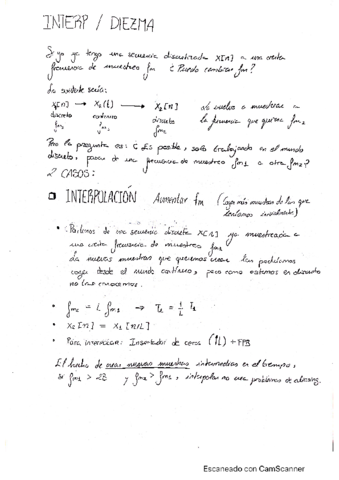 INTERP / DIEZMA
Si yo ya tengo una secuencia discretizada x[n] a una cierta
frecuencia de muestreo fm ¿Puedo cambiar fm?
Lo evidente sería:
x[n] → xc(t) → x2[n] de vuelta a muestrear a
discreto continuo discreto la frecuencia que quiera fm2
fm1 fm2
Pero la pregunta es: ¿Es posible, solo trabajando en el mundo
discreto, pasar de una frecuencia de muestreo fm1 a otra fm2?
2 CASOS:
INTERPOLACIÓN Aumentar fm (Coger más muestras de las que
teníamos inicialmente)
• Partimos de una secuencia discreta x[n] ya muestreada a
una cierta frecuencia de muestreo fm1
La nuevas muestras que queremos crear las podríamos
coger desde el mundo continuo, pero como estamos en discreto
no las conocemos.
• fm2 = L fm1 → T2 = 1/L T1
• x2[n] = x1[n/L]
• Para interpolar: Insertador de ceros (↑L) + FPB
El hecho de crear nuevas muestras intermedias en el tiempo,
si fm1 > 2B y fm2 > fm1, interpolar no crea problemas de aliasing.
Escaneado con CamScanner